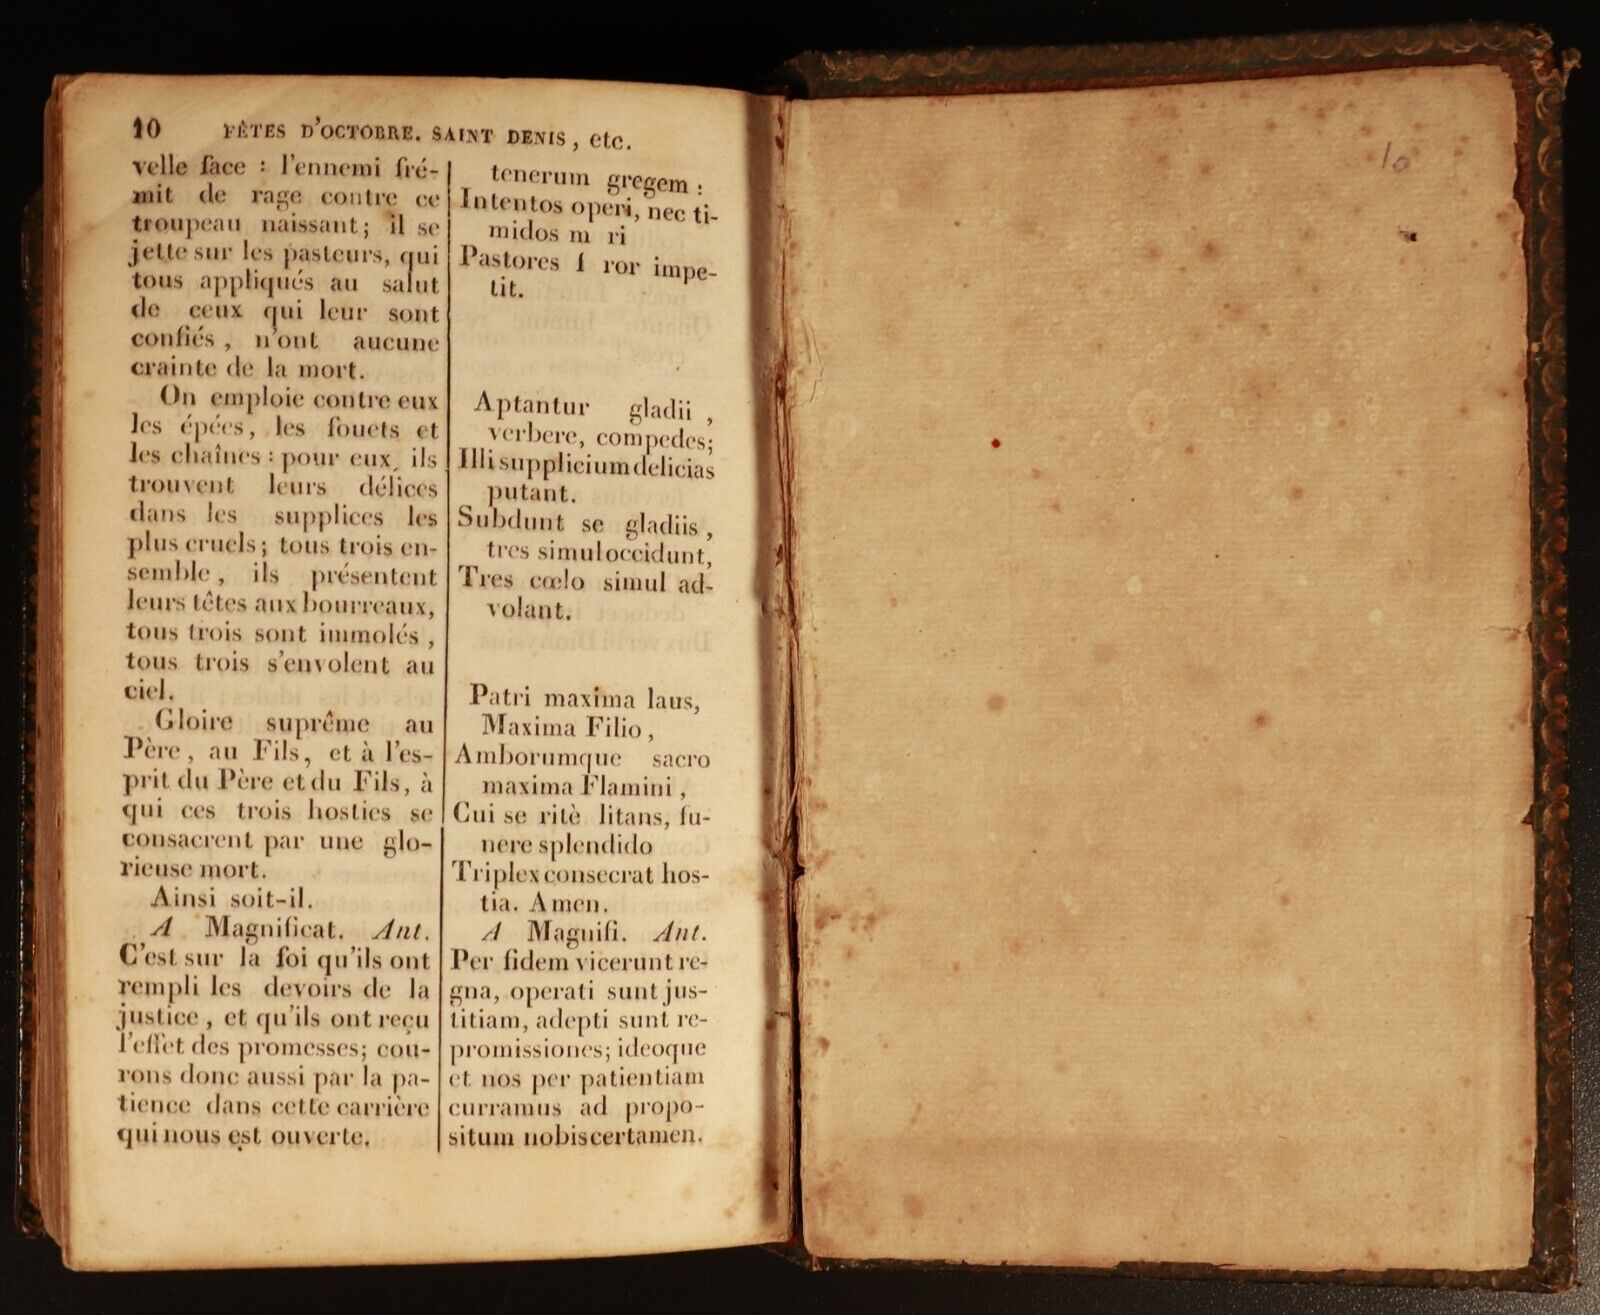 10 FÊTES D'OCTOBRE. SAINT DENIS, etc.
velle face : l'ennemi fré-
mit de rage contre ce
troupeau naissant; il se
jette sur les pasteurs, qui
tous appliqués au salut
de ceux qui leur sont
confiés, n'ont aucune
crainte de la mort.
On emploie contre eux
les épées, les fouets et
les chaînes : pour eux, ils
trouvent leurs délices
dans les supplices les
plus cruels; tous trois en-
semble, ils présentent
leurs têtes aux bourreaux,
tous trois sont immolés,
tous trois s'envolent au
ciel.
Gloire suprême au
Père, au Fils, et à l'es-
prit du Père et du Fils, à
qui ces trois hosties se
consacrent par une glo-
rieuse mort.
Ainsi soit-il.
A Magnificat. Ant.
C'est sur la foi qu'ils ont
rempli les devoirs de la
justice, et qu'ils ont reçu
l'effet des promesses; cou-
rons donc aussi par la pa-
tience dans cette carrière
qui nous est ouverte.
tenerum gregem :
Intentos operi, nec ti-
midos m ri
Pastores f ror impe-
tit.
Aptantur gladii,
verbere, compedes;
Illi supplicium delicias
putant.
Subdunt se gladiis,
tres simul occidunt,
Tres cœlo simul ad-
volant.
Patri maxima laus,
Maxima Filio,
Amborumque sacro
maxima Flamini,
Cui se ritè litans, fu-
nere splendido
Triplex consecrat hos-
tia. Amen.
A Magnifi. Ant.
Per fidem vicerunt re-
gna, operati sunt jus-
titiam, adepti sunt re-
promissiones; ideoque
et nos per patientiam
curramus ad propo-
situm nobis certamen.
10